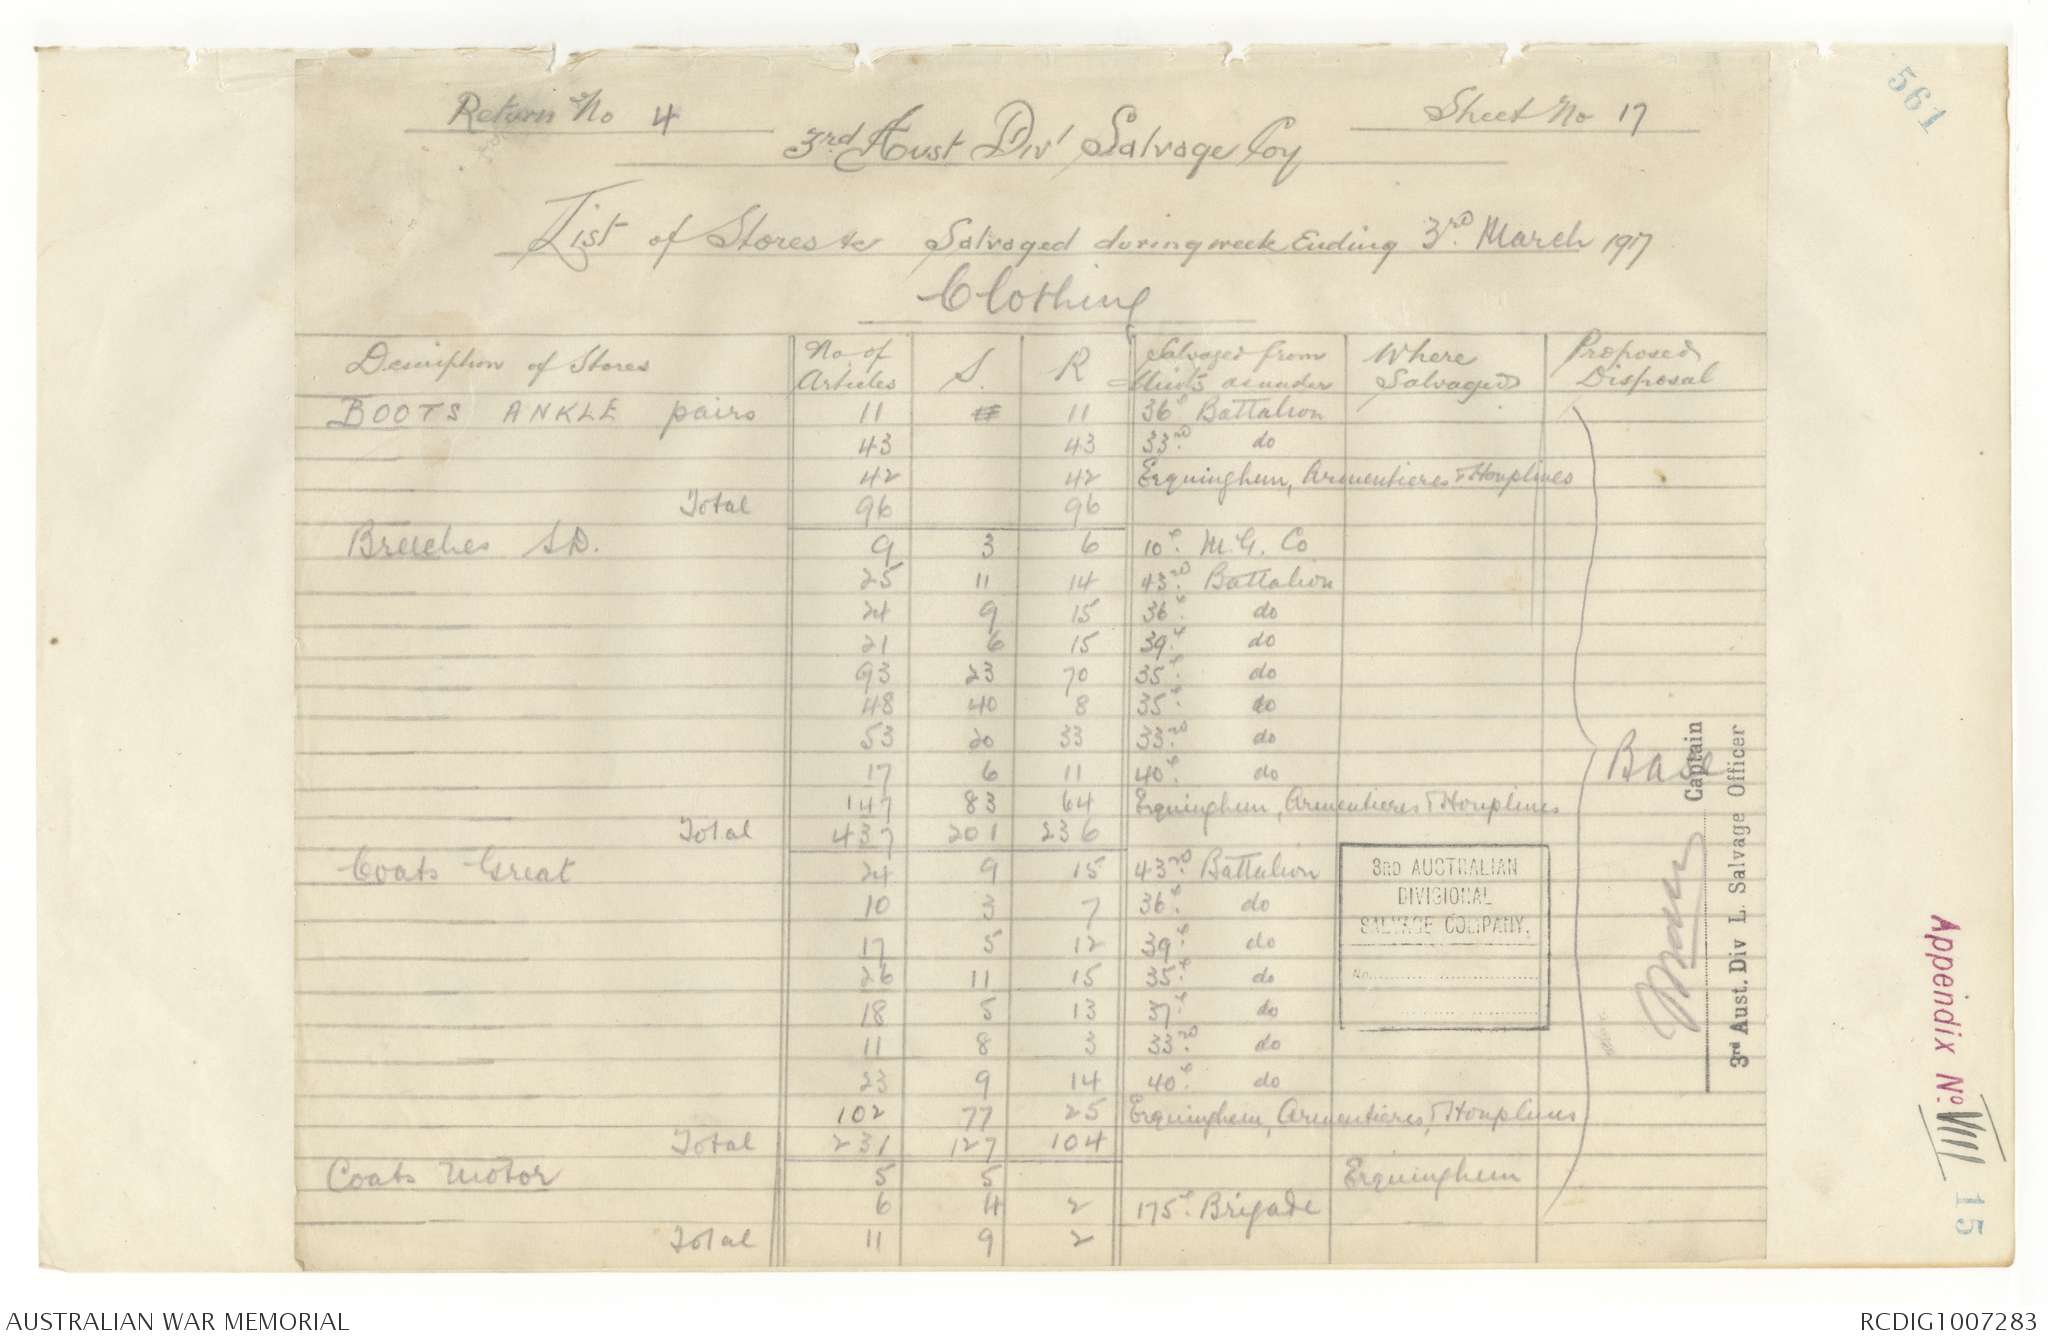 Return No 4
Sheet No 17
561
3rd Aust Div' Salvage Coy
List of Stores &c Salvaged during week Ending 3rd March 1917
Clothing
Description of Stores No. of Articles S. R Salvaged from Units as under Where Salvaged Proposed Disposal
BOOTS ANKLE pairs 11 11 36th Battalion
43 43 33rd do
42 42 Erquinghem, Armentieres & Houplines
Total 96 96
Breeches S.D. 9 3 6 10th M.G. Co
25 11 14 43rd Battalion
24 9 15 36th do
21 6 15 39th do
93 23 70 35th do
48 40 8 35th do
53 20 33 33rd do
17 6 11 40th do
147 83 64 Erquinghem, Armentieres & Houplines
Total 437 201 236
Coats Great 24 9 15 43rd Battalion
10 3 7 36th do
17 5 12 39th do
26 11 15 35th do
18 5 13 37th do
11 8 3 33rd do
23 9 14 40th do
102 77 25 Erquinghem, Armentieres, & Houplines
Total 231 127 104
Coats Motor 5 5 Erquinghem
6 4 2 175th Brigade
Total 11 9 2
Base
3RD AUSTRALIAN
DIVISIONAL
SALVAGE COMPANY.
No.
Captain
3rd Aust. Div L. Salvage Officer
Appendix No. VIII
15
AUSTRALIAN WAR MEMORIAL
RCDIG1007283